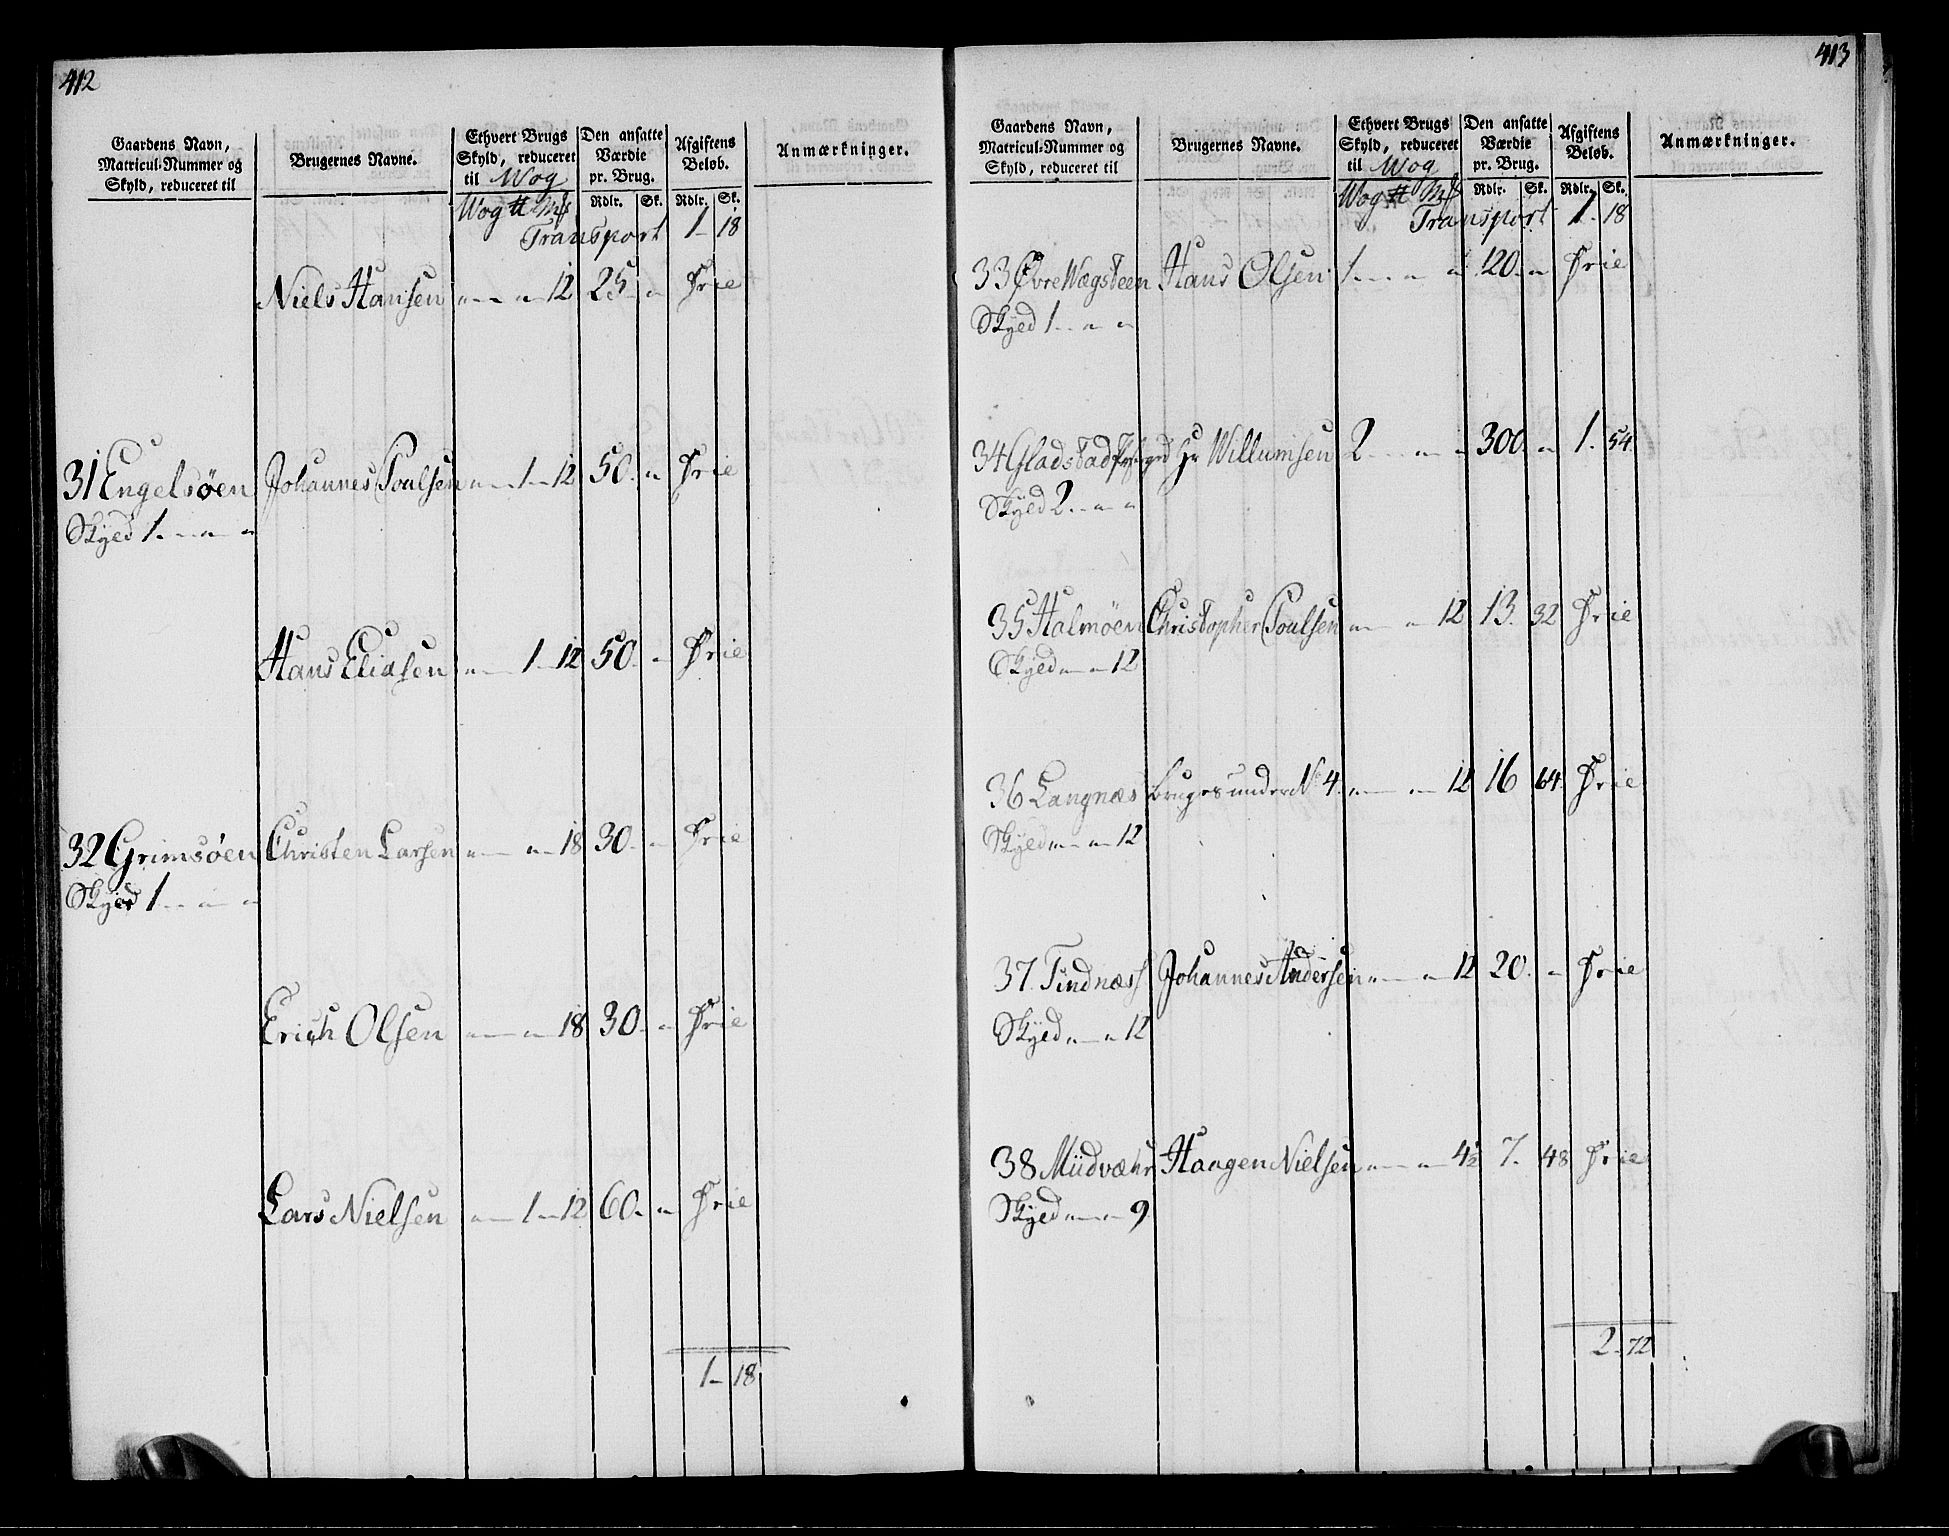 412
Gaardens Navn, Matricul-Nummer og Skyld, reduceret til
Brugernes Navne.
Ethvert Brugs Skyld, reduceret til Wog
Den ansatte Værdie pr. Brug.
Afgiftens Beløb.
Anmærkninger.
Wog ℔ Mk Rdlr. Sk. Rdlr. Sk.
Transport 1 - 18
Niels Hansen " - " - 12 25 - " Frie
31 Engelsøen Johannes Poulsen " - 1 - 12 50 - " Frie
Skyed 1 - " - "
Hans Eliasen " - 1 - 12 50 - " Frie
32 Grimsøen Christen Larsen " - " - 18 30 - " Frie
Skyed 1 - " - "
Erich Olsen " - " - 18 30 - " Frie
Lars Nielsen " - 1 - 12 60 - " Frie
1 - 18
413
Gaardens Navn, Matricul-Nummer og Skyld, reduceret til
Brugernes Navne.
Ethvert Brugs Skyld, reduceret til Wog
Den ansatte Værdie pr. Brug.
Afgiftens Beløb.
Anmærkninger.
Wog ℔ Mk Rdlr. Sk. Rdlr. Sk.
Transport 1 - 18
33 Øvre Wægsteen Hans Olsen 1 - " - " 120 - " Frie
Skyed 1 - " - "
34 Gladstad Hr Willumsen 2 - " - " 300 - " 1 - 54
Skyed 2 - " - "
35 Halmøen Christopher Poulsen " - " - 12 13 - 32 Frie
Skyed " - " 12
36 Langnæs bruges under No 4 " - " - 12 16 64 Frie
Skyed " - " - 12
37 Tindnæss Johannes Andersen " - " - 12 20 - " Frie
Skyed " - " 12
38 Miidvæhr Haagen Nielsen " - " - 4½ 7 - 48 Frie
Skyed " - " - 9
2 - 72